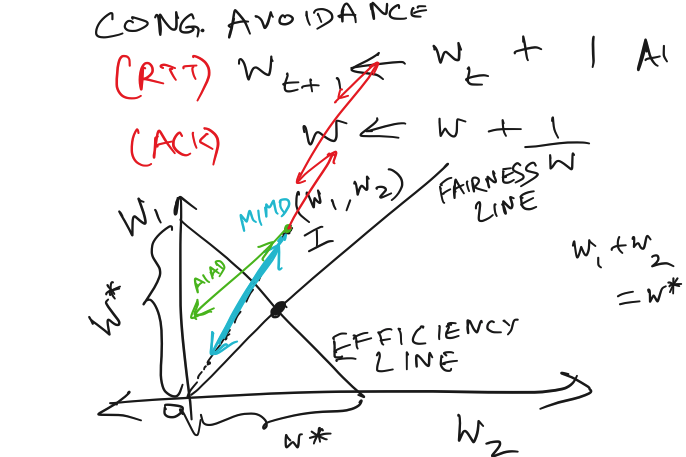 CONG. AVOIDANCE
(RTT) W_{t+1} ← W_t + 1 AI
(ACK) W ← W + 1/W
FAIRNESS LINE
(W_1, W_2)
W_1
MIMD
I
AIAD
W_1 + W_2
= W*
W*
EFFICIENCY
LINE
0
W*
W_2